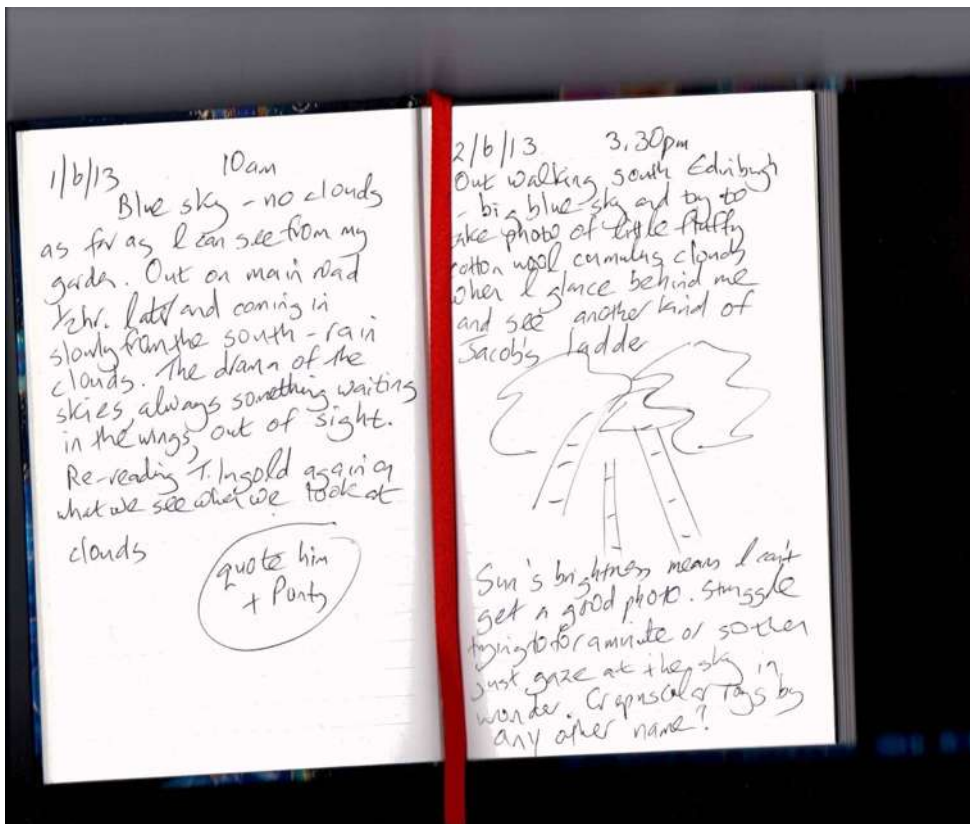 1/6/13 10am
Blue sky - no clouds
as far as I can see from my
garden. Out on main road
1/2hr. later and coming in
slowly from the south - rain
clouds. The drama of the
skies, always something waiting
in the wings, out of sight.
Re-reading T. Ingold again on
what we see when we look at
clouds
quote him
+ Ponty
2/6/13 3.30pm
Out walking south Edinburgh
- big blue sky and try to
take photo of little fluffy
cotton wool cumulus clouds
when I glance behind me
and see another kind of
Jacob's ladder
Sun's brightness means I can't
get a good photo. Struggle
trying to for a minute or so then
just gaze at the sky in
wonder. Crepuscular rays by
any other name?